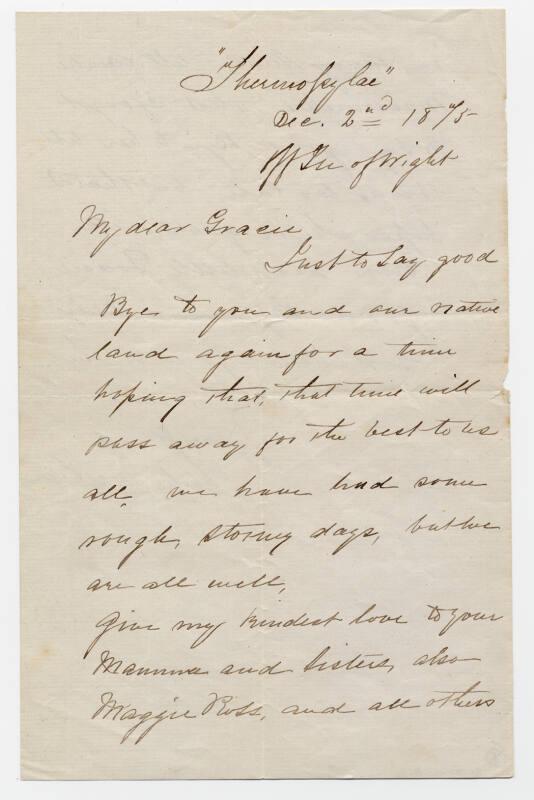 "Thermopylae"
Dec. 2nd 1875
Off Isle of Wight
My dear Gracie
Just to Say good
Bye to you and our native
land again for a time
hoping that, that time will
pass away for the best to us
all, we have had some
rough, stormy days, but we
are all well,
Give my kindest love to your
Mamma and Sisters, also
Maggie Ross, and all others